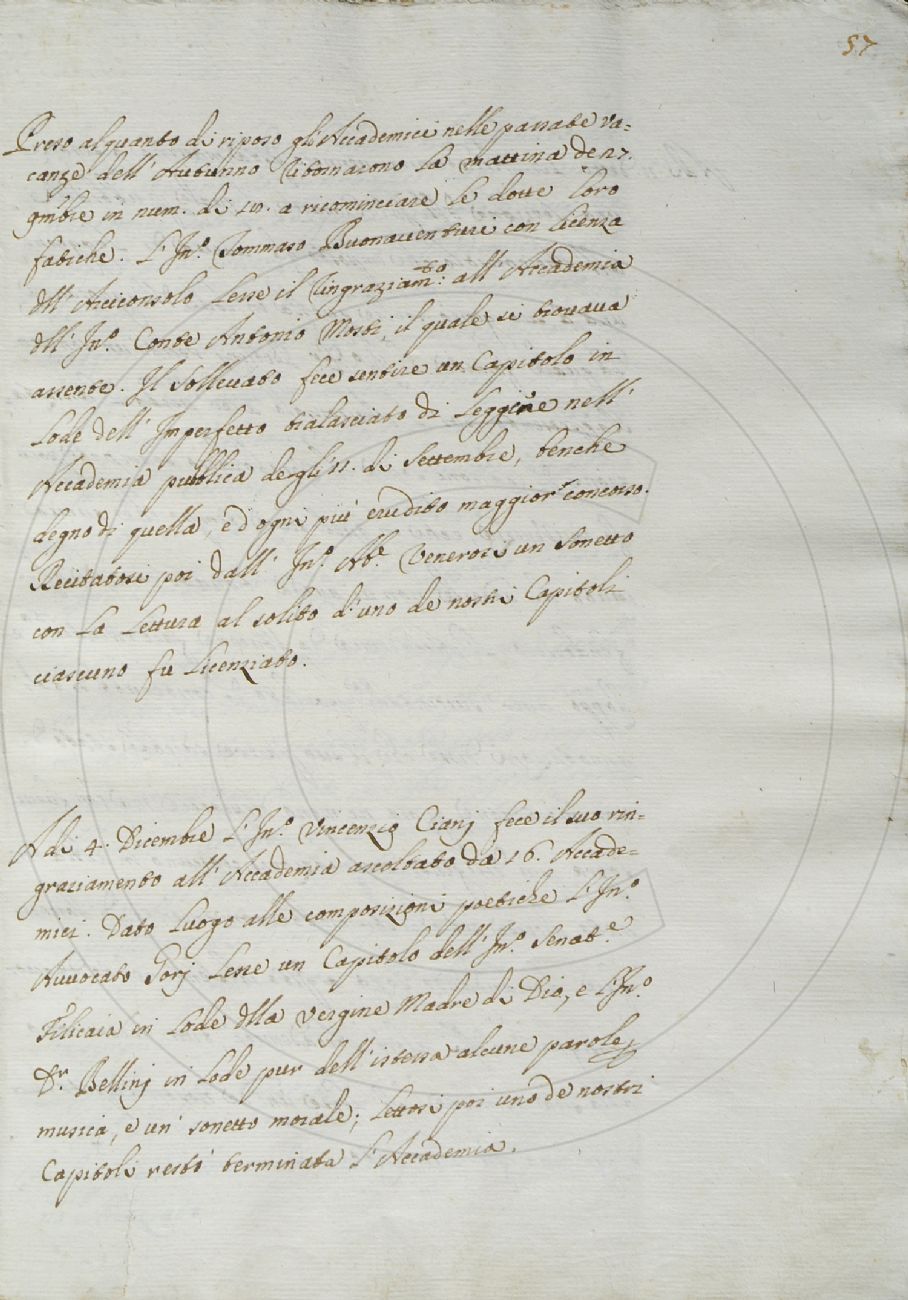 57
Preso alquanto di riposo gl'Accademici nelle passate va=
canze dell'Autunno ritornarono la mattina de 27.
9mbre in num. di 10. a ricominciare le dotte loro
fatiche. L'Inn.º Tommaso Buonaventuri con licenza
dll'Arciconsolo lesse il ringraziam.to all'Accademia
dll'Inn.º Conte Antonio Mosti, il quale si trovava
assente. Il Sollevato fece sentire un Capitolo in
lode dell'Imperfetto tralasciato di leggere nell'
Accademia pubblica degli 11. di Settembre, benche
degno di quella, e d'ogni più erudito maggior concorso.
Recitatosi poi dall'Inn.º Ab.e Venerosi un Sonetto
con la lettura al solito d'uno de nostri Capitoli
ciascuno fù licenziato.
A di 4. Dicembre l'Inn.º Vincenzio Cianj fece il suo rin=
graziamento all'Accademia ascoltato da 16. Accade=
mici. Dato luogo alle composizioni poetiche l'Inn.º
Avvocato Forj lesse un Capitolo dell'Inn.º Senat.e
Filicaia in lode dlla Vergine Madre di Dio, e l'Inn.º
D.r Bellinj in lode pur dell'istessa alcune parole p
musica, e un' sonetto morale; lettosi poi uno de nostri
Capitoli restò terminata l'Accademia.